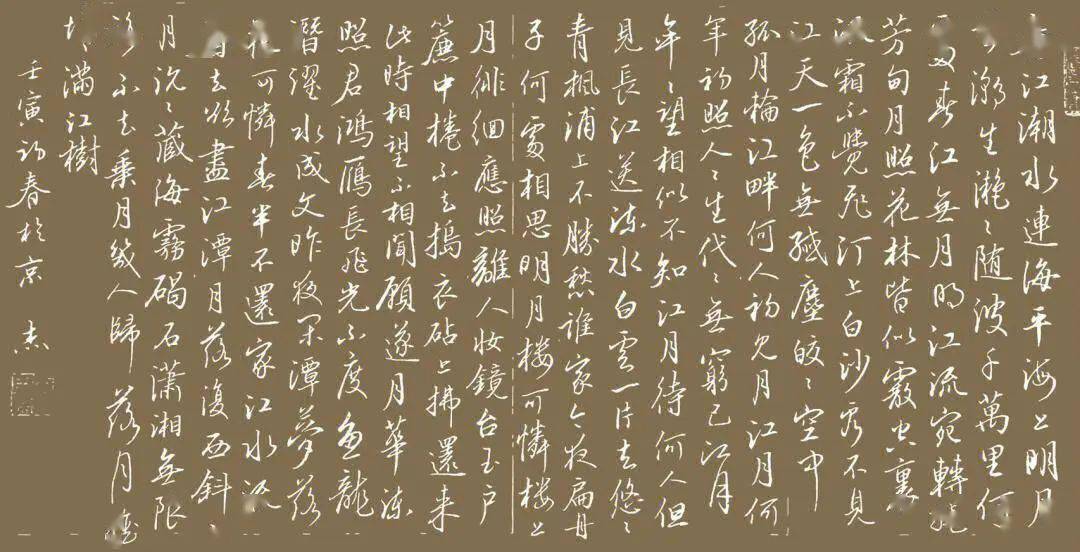 江潮水連海平海上明月
潮生灧〻随波千萬里何
春江無月明江流宛轉
芳甸月照花林皆似霰空裏
霜不覺飛汀上白沙看不見
江天一色無纖塵皎〻空中
孤月輪江畔何人初見月江月何
年初照人〻生代〻無窮已江月
年〻望相似不知江月待何人但
見長江送流水白雲一片去悠〻
青楓浦上不勝愁誰家今夜扁舟
子何處相思明月楼可憐楼上
月徘徊應照離人妝鏡台玉户
簾中捲不去搗衣砧上拂還来
此時相望不相聞願逐月華流
照君鴻雁長飛光不度魚龍
潛躍水成文昨夜閑潭夢落
花可憐春半不還家江水流
去欲盡江潭月落復西斜〻
月沉〻藏海霧碣石瀟湘無限
路不知乘月幾人歸落月
滿江樹
壬寅初春於京 杰